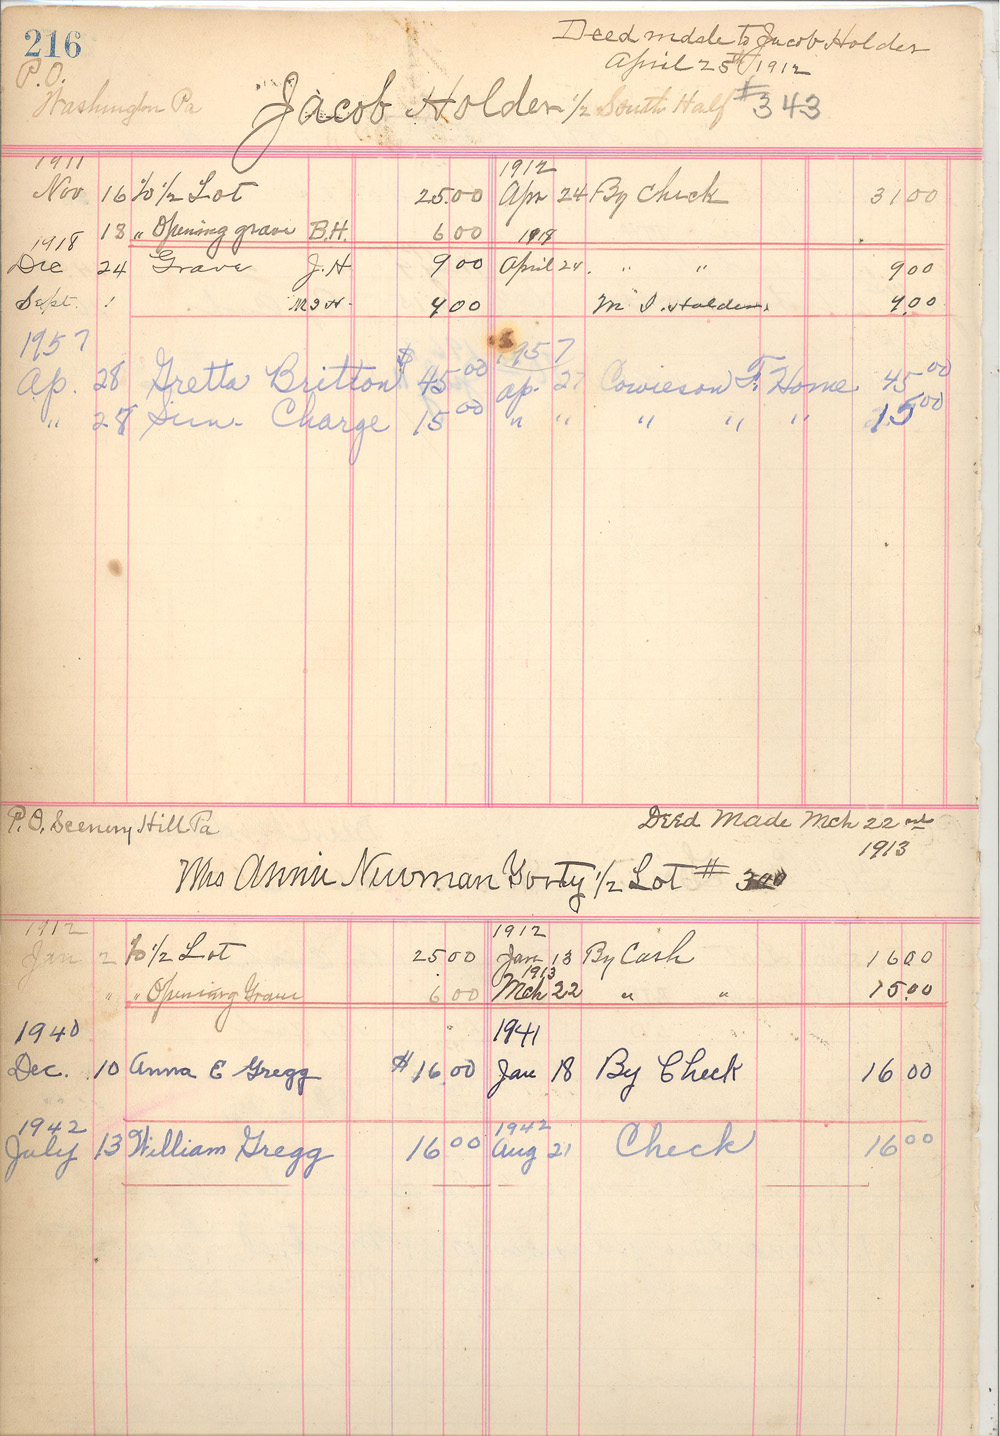 216
Deed made to Jacob Holder
April 25th 1912
P.O.
Washington Pa
Jacob Holder 1/2 South Half #343
1911 1912
Nov 16 To 1/2 Lot 25.00 Apr 24 By Check 31 00
18 " Opening grave B.H. 6 00 1919
1918
Dec 24 Grave J.H 9 00 April 24. " " 9 00
Sept. 1 4 00 Holder. 4.00
1957 1957
Ap. 28 Gretta Britton $ 45 00 ap. 27 Cowieson F. Home 45 00
" 28 Sun. Charge 15 00 " " " " " 15 00
P.O. Scenery Hill Pa Deed Made Mch 22nd
1913
Mrs Annie Newman Yorty 1/2 Lot # 300
1912 1912
Jan 2 To 1/2 Lot 25 00 Jan 13 By Cash 16 00
1913
" " Opening Grave 6 00 Mch 22 " " 15.00
1940 1941
Dec. 10 Anna E Gregg $ 16 00 Jan 18 By Check 16 00
1942 1942
July 13 William Gregg 16 00 Aug 21 Check 16 00